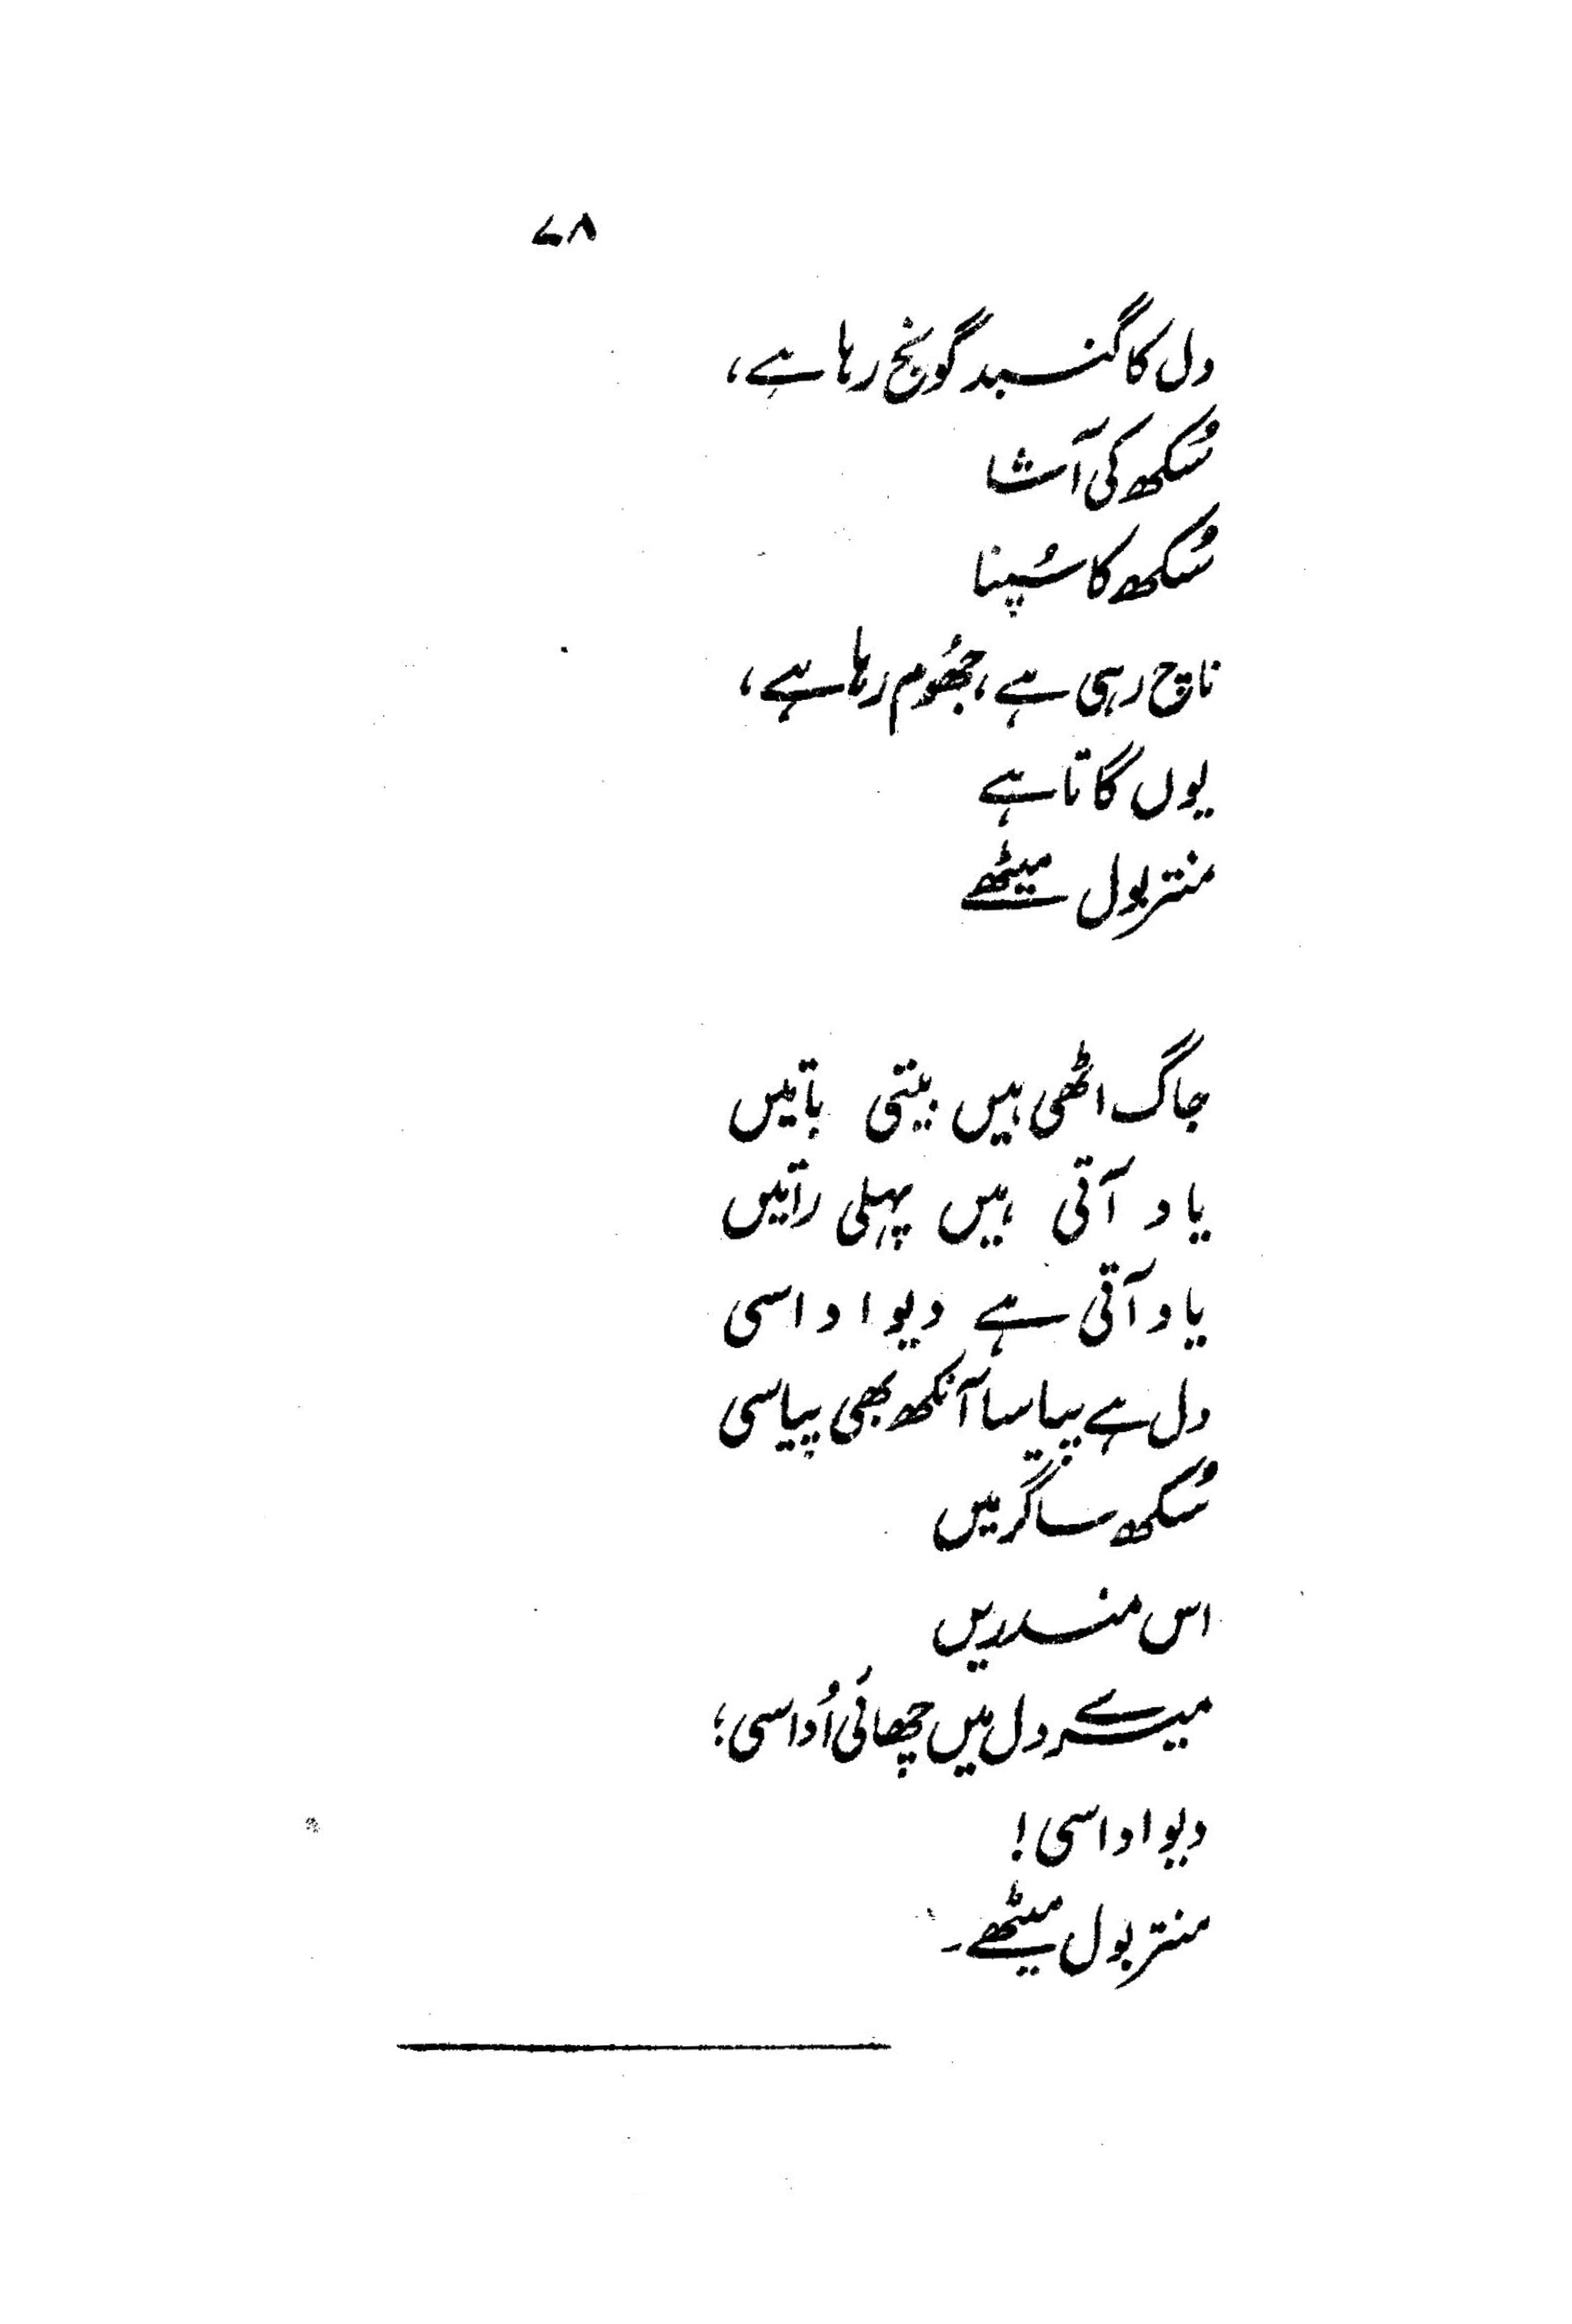 ۷۸
دل کا گنبد گونج رہا ہے،
سُکھ کی آشا
سُکھ کا سُپنا
ناچ رہی ہے، جھُوم رہا ہے،
یوں گاتا ہے
منتر بول میٹھے
جاگ اٹھی ہیں بیتی باتیں
یاد آتی ہیں پہلی راتیں
یاد آتی ہے دیوا داسی
دل ہے پیاسا آنکھ بھی پیاسی
سُکھ ساگر میں
اس مندر میں
میرے دل میں چھائی اُداسی؛
دیوا داسی!
منتر بول میٹھے۔